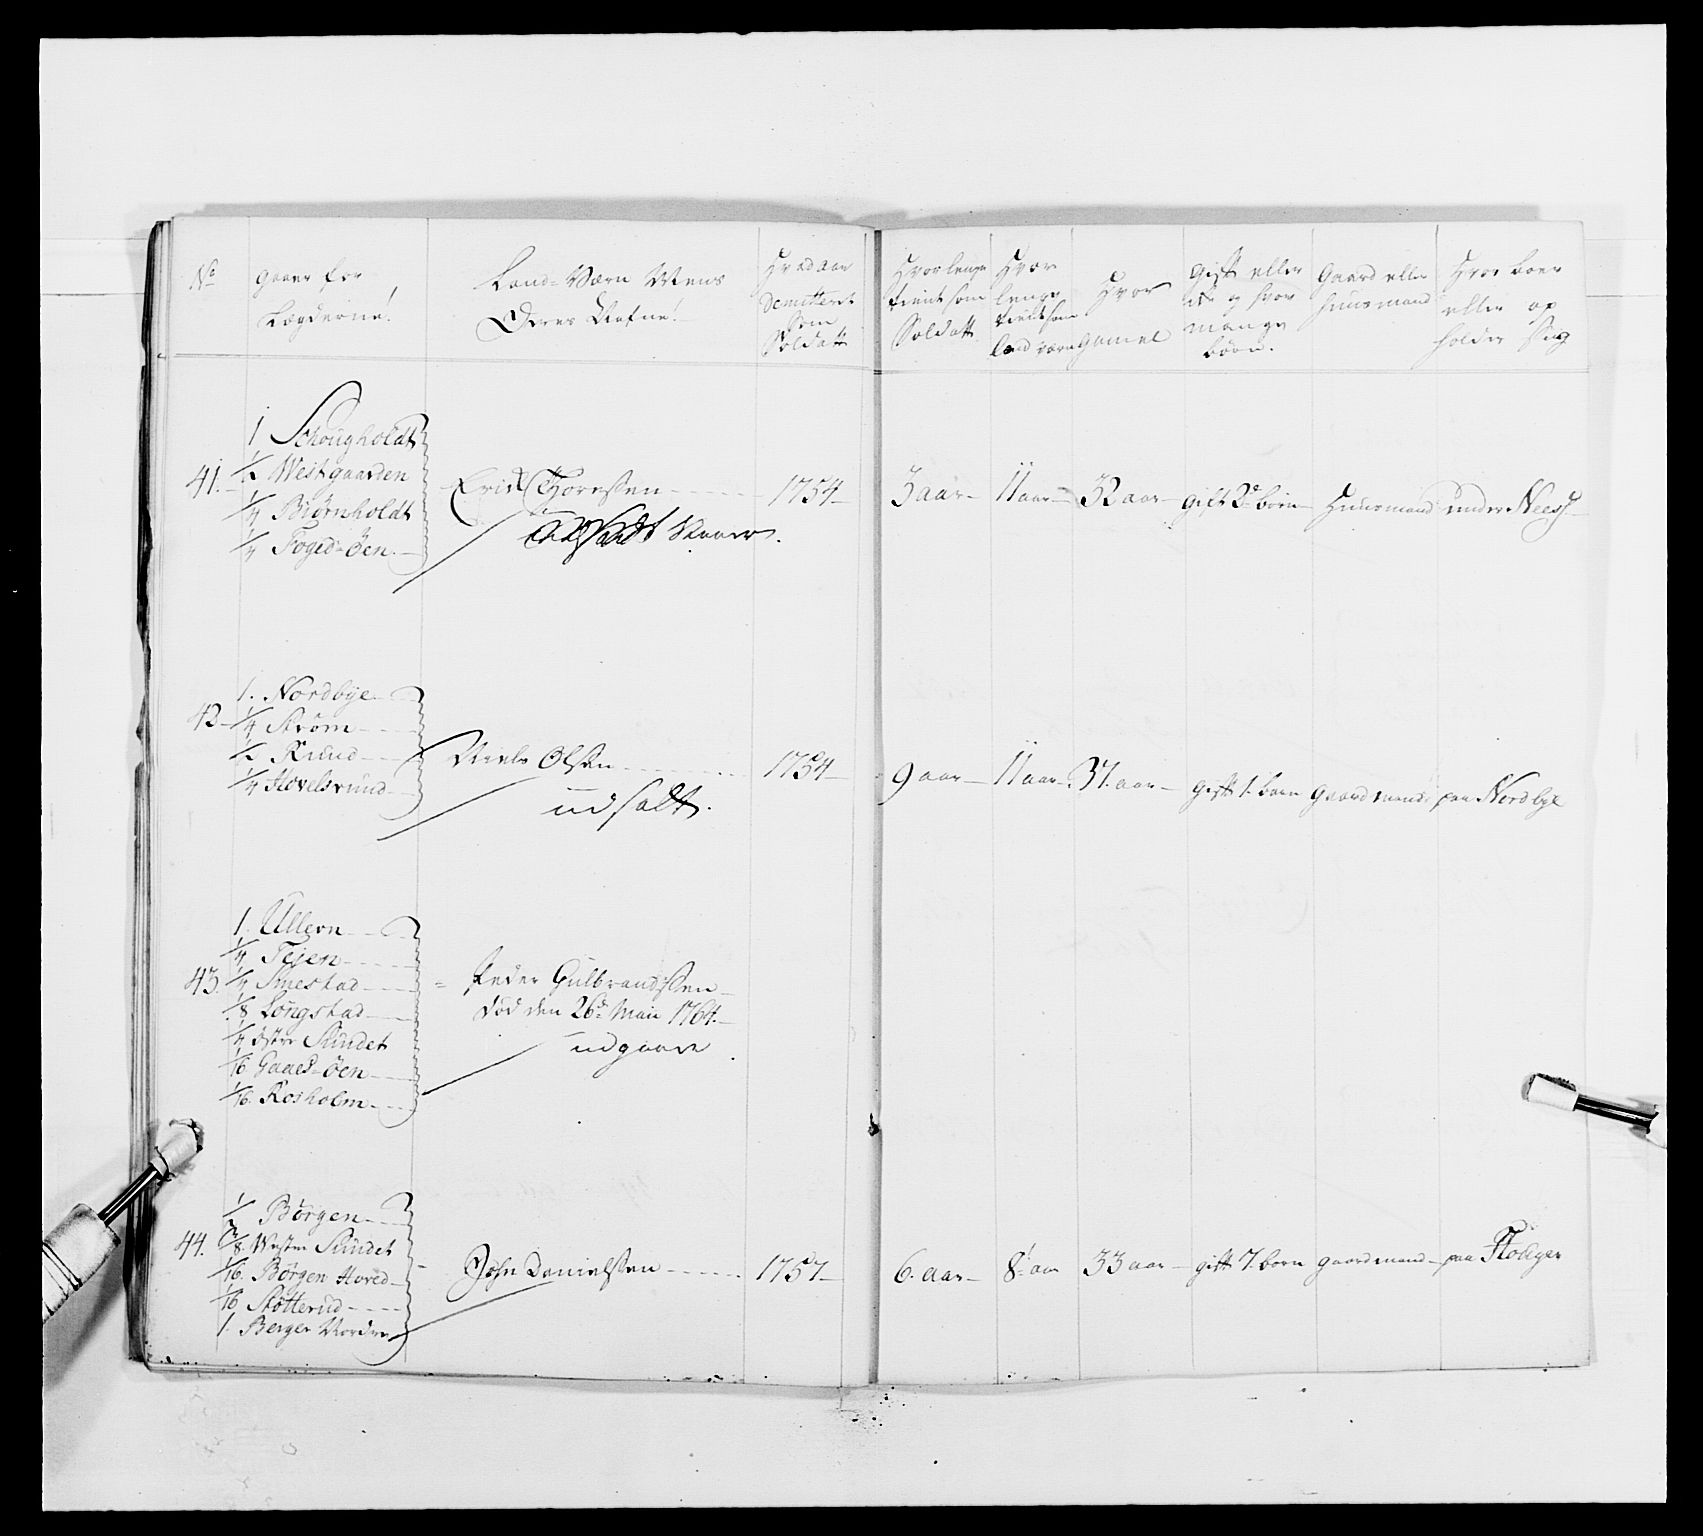 No
gaver for
Lægderne!
Land-Værn Mens
Deres Nafne!
Hvad aar
Demitteret
som
Soldatt
Hvor lenge
tient som
Soldatt
Hvor
lenge
tient som
land værn
Hvor
Gamel
Gift eller
ey og hvor
mange
børn.
Gaard eller
huusmand
Hvor boer
eller op
holder sig
1 Schougholdt
41. 1/2 Westgaarden
1/4 Biørnholdt
1/4 Foged-Öen
Erich Thoresen 1754 3 aar 11 aar 32 aar gift 2de børn Huusmand under Nees
1. Nordbye
42 1/4 Strøm
1/2 Ruud
1/4 Hovelsruud
Niels Olsen 1754 9 aar 11 aar 37. aar gift 1. barn gaardmand paa Nordbye
udsatt.
1. Ullern
1/4 Tejen
43. 1/4 Smestad
1/8 Longstad
1/4 østre Sundet
1/16 Gaaes-Öen
1/16. Rosholm
Peder Gulbrandsen
död den 26de Maii 1764.
udgaar
1/2 Börgen
44. 3/8. Westre Sundet
1/16. Börgen Hoved
1/16 Støtterud
1. Berger Nordre
John Danielsen 1757 6. aar 8. aar 33 aar gift 7. børn gaardmand paa Flodiger